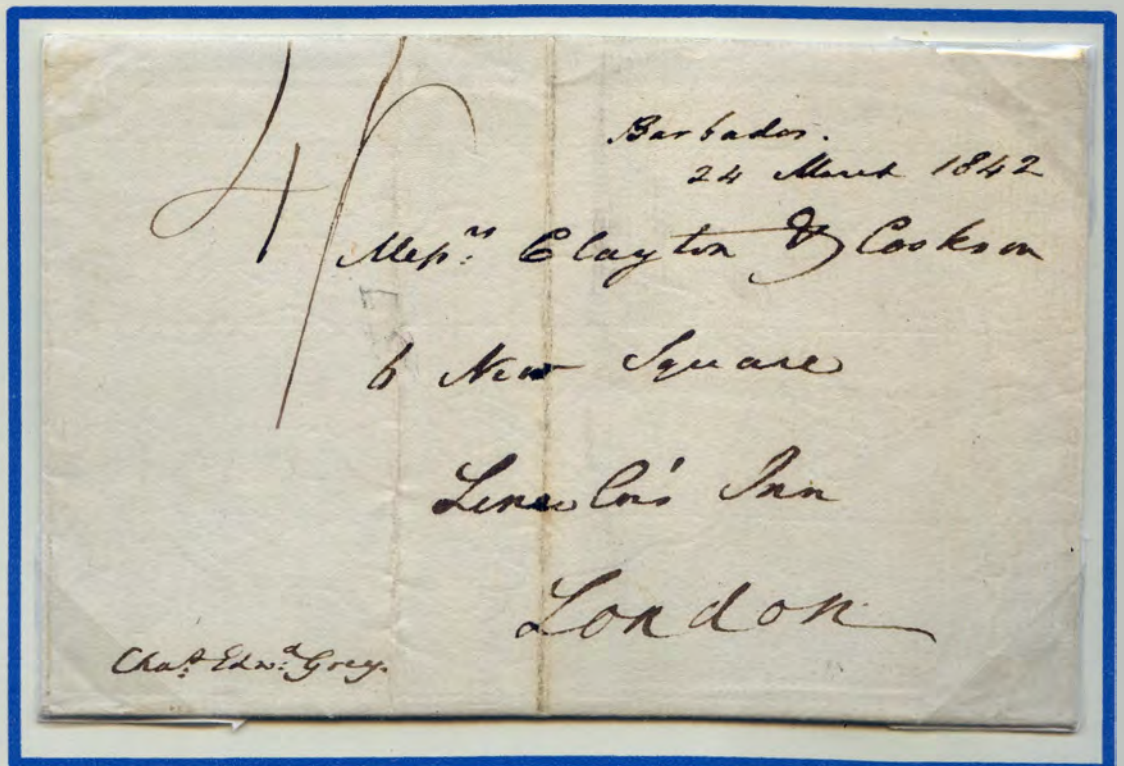 4/
Barbados.
24 March 1842
Messrs: Clayton & Cookson
6 New Square
Lincoln's Inn
London
Chas. Edwd. Grey.